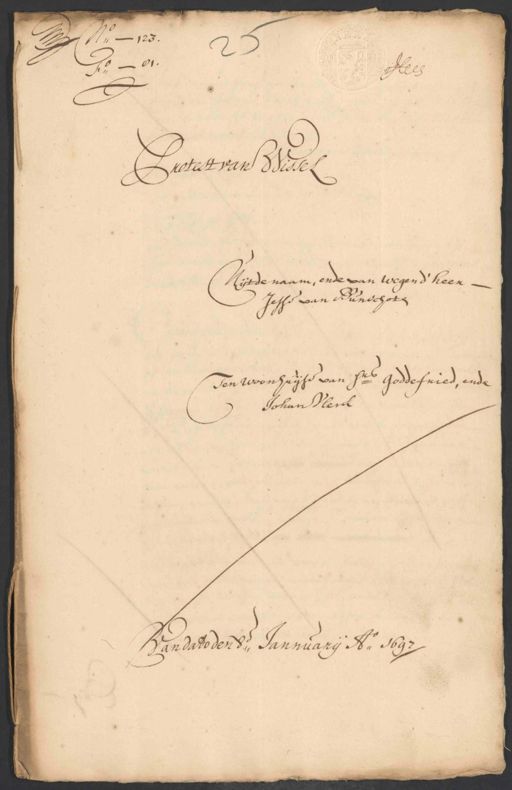 N:o — 123.
25
F:o — 91.
Protest van Wissel
Uijtde naam, ende van wegen d'heer —
van Bunschote
Ten woonhuijse van Goddefried, ende
Johan
Van dato den 8: Jannuarij A:o 1697